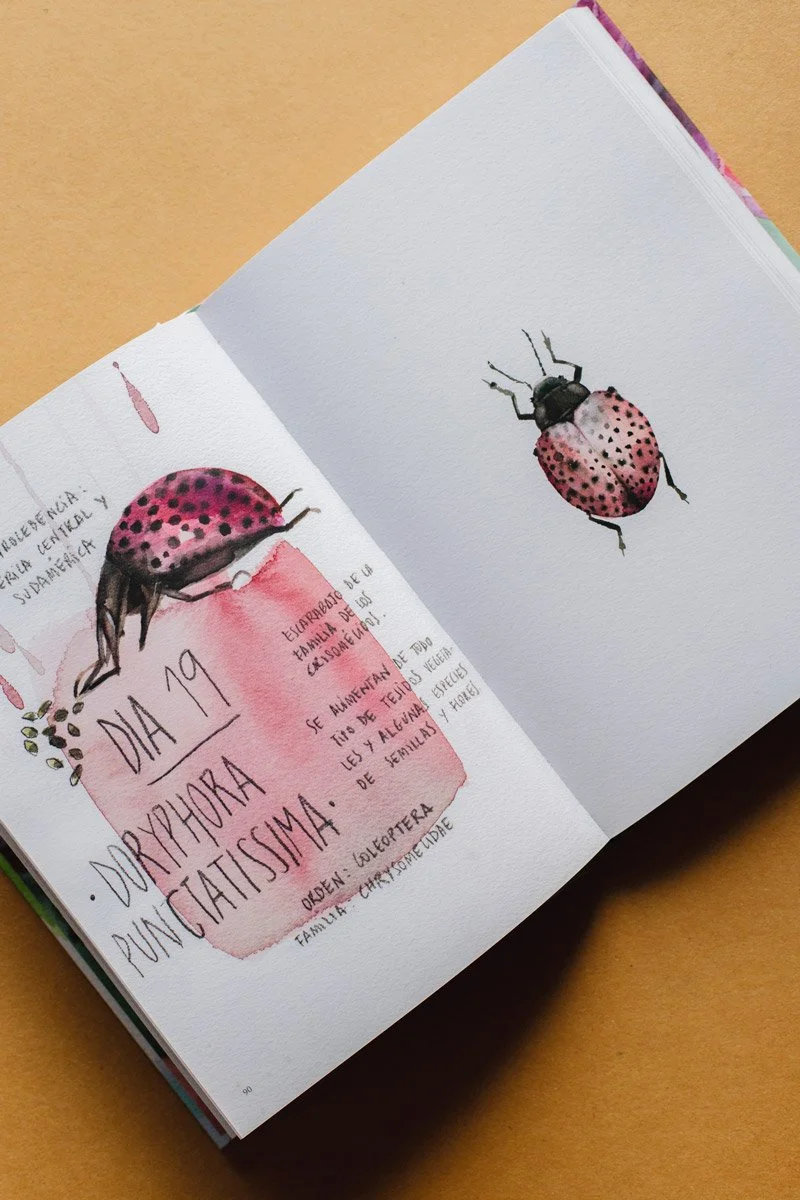 CENTRAL Y
SUDAMÉRICA
DIA 19
· DORYPHORA
PUNCTATISSIMA ·
ESCARABAJO DE LA
FAMILIA DE LOS
CRISOMÉLIDOS.
SE ALIMENTAN DE TODO
TIPO DE TEJIDOS VEGETA-
LES Y ALGUNAS ESPECIES
DE SEMILLAS Y FLORES
ORDEN: COLEOPTERA
FAMILIA: CHRYSOMELIDAE
90